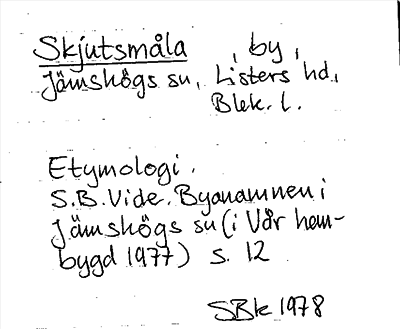 Skjutsmåla, by,
Jämshögs sn, Listers hd,
Blek. l.
Etymologi.
S.B. Vide. Byanamnen i
Jämshögs sn (i Vår hem-
bygd 1977) s. 12
SBk 1978